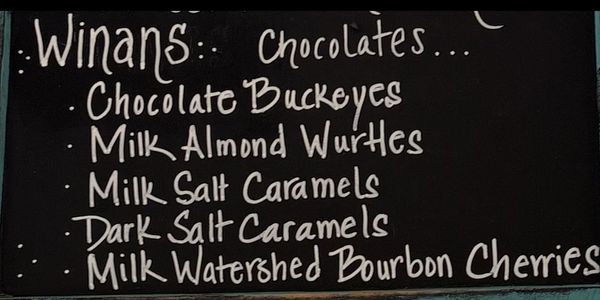 Winans: Chocolates...
· Chocolate Buckeyes
· Milk Almond Wurtles
· Milk Salt Caramels
· Dark Salt Caramels
· Milk Watershed Bourbon Cherries